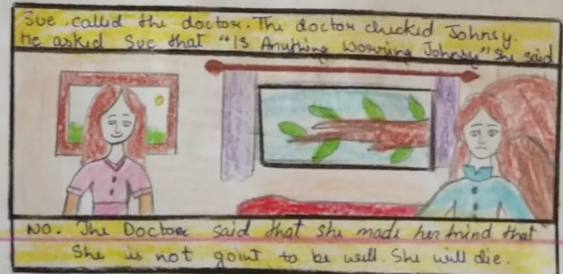 Sue called the doctor. The doctor checked Johnsy.
He asked Sue that "Is Anything worring Johnsy" She said
No. The Doctor said that she made her mind that
She is not goint to be well. She will die.